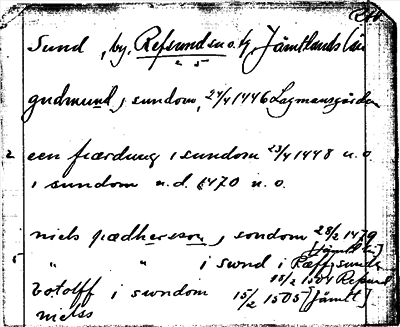 Sund, by, Refsund sn o. tg, Jämtlands län
2 5
gudmund, i sundom, 24/4 1446 Lagmansgården
2 een fiærdung i sundom 23/4 1448 n.o.
i sundom n.d. 1470 n.o.
niels pædhersson, sondom 28/2 1479
[Jämtl.]
5 " " i swnd i Ræffsunda
18/2 1504 Refsund
botolff i swndom 15/2 1505 [Jämtl].
nielss